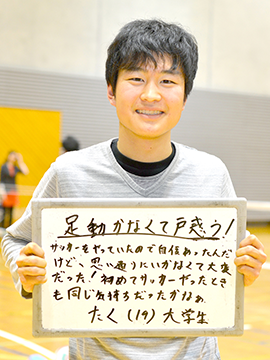 足動かなくて戸惑う!
サッカーをやっていたので自信あったんだ
けど、思い通りにいかなくて大変
だった!初めてサッカーやったとき
も同じ気持ちだったかなぁ。
たく(19)大学生